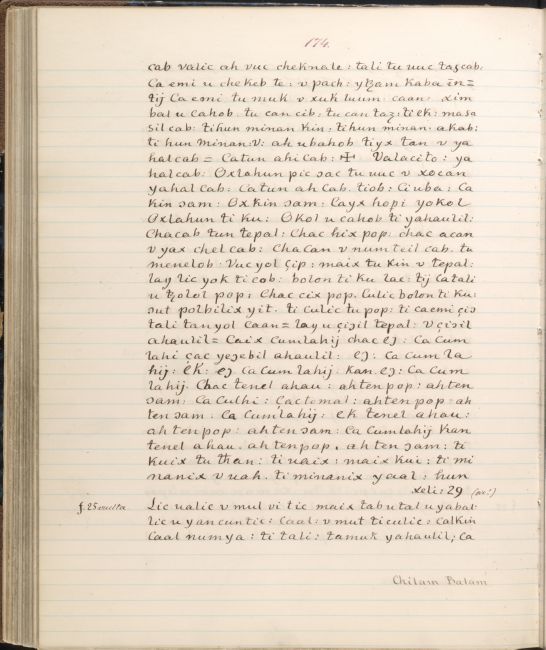 174.
cab valic ah vuc cheknale: tali tu uuc tasçab.
Ca emi u chekeb te: v pach: yꜩam kaba en=
tij Ca emi tu muk v xuk luum: caan: xim
bal u cahob. tu can cib: tu can taz: ti ek: masa
sil cab: ti hun minan kin: ti hun minan: akab:
ti hun minan. V: ah ubahob tiyx tan v ya
hal cab = Catun ahi Cab: ✠ Valacito: ya
hal cab: Oxlahun pic sac tu uuc v xocan
yahal cab: Catun ah Cab. tiob: Ciuba: Ca
kin sam: Ox kin sam: Cayx hopi yokol
Oxlahun ti ku: Okol u cahob ti yahaulil:
Chacab tun tepal: Chac hix pop: chac acan
v yax chel cab: Chacan v numteil cab. tu
menelob: Vuc yol çip: maix tu kin v tepal:
lay lic yok ti cob: bolon ti ku lae: tij ca tali
u ꜩolol pop: Chac cix pop. Culic bolon ti ku:
sut polbilix yit. ti culic tu pop: ti ca emi çis
tali tan yol Caan = lay u çisil tepal: v çisil
ahaulil = Caix cumlahij chac eʒ: Ca cum
lahi çac yesebil ahaulil: eʒ: Ca cum la
hij: Ek: eʒ Ca cum lahij: Kan. eʒ: Ca cum
lahij. Chac tenel ahau: ahten pop: ahten
sam: Ca Culhi: Çactemal: ahten pop: ah
ten sam: Ca Cumlahij: Ek tenel ahau:
ahten pop: ahten sam: Ca cumlahij Kan
tenel ahau. ahten pop, ahten sam: ti
kuix tu than: ti uaix: maix kui: ti mi
nanix v uah. ti minanix yaal: hun
xeli: 29
f. 25 vuelta. Lic ualic v mul vi tic maix tab u tal u yabal
lic u yan cuntic: Caal: v mut ti culic: Calkin
Caal numya: ti tali: tamuk yahaulil; Ca
Chilam Balam